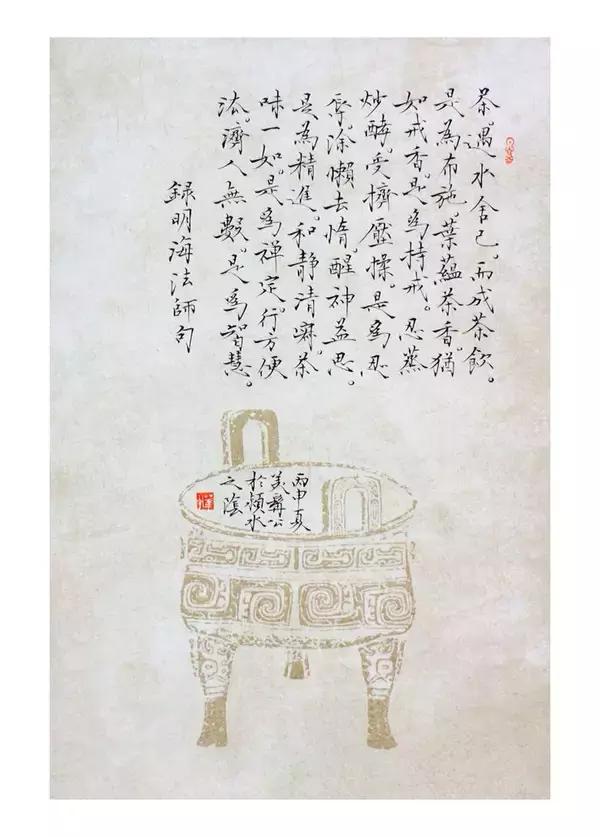 茶。遇水舍己。而成茶飲。
是為布施。葉蘊茶香。猶
如戒香。是為持戒。忍蒸
炒酵。受擠壓揉。是為忍
辱。除懶去惰。醒神益思。
是為精進。和静清寂。茶
味一如。是為禅定。行方便
法。濟人無數。是為智慧。
録明海法師句
丙申夏
美髯公
於潁水
之陰